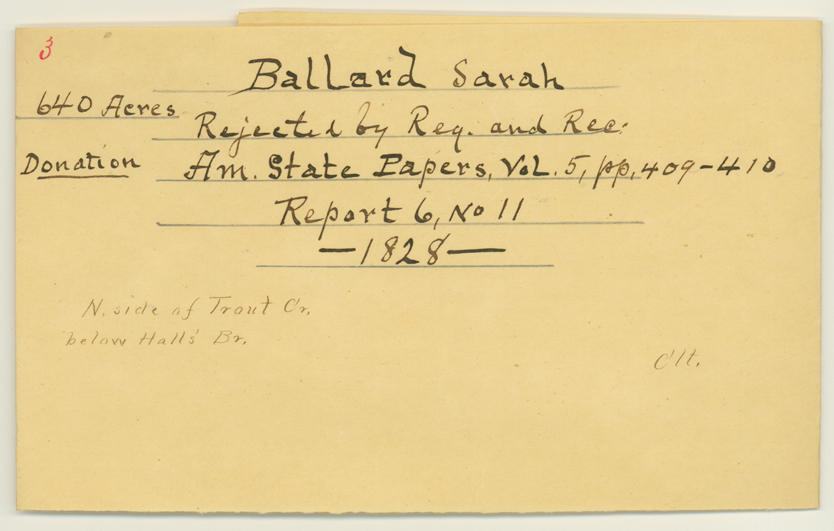 3
Ballard Sarah
640 Acres
Rejected by Reg. and Rec.
Donation
Am. State Papers, Vol. 5, pp. 409-410
Report 6, No 11
—1828—
N. side of Trout Cr.
below Halls' Br.